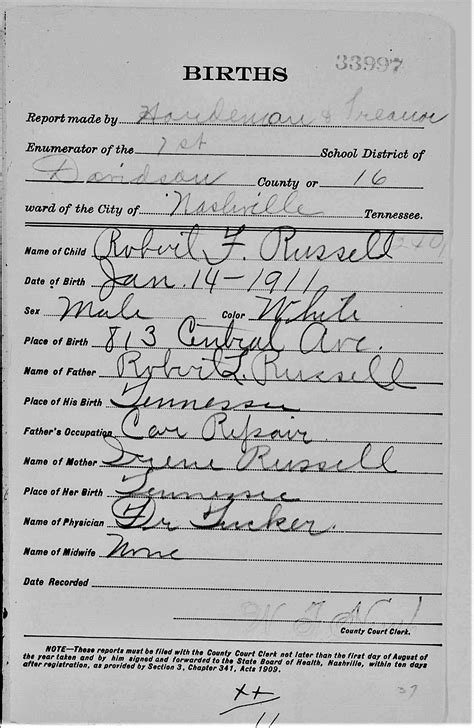 33997
BIRTHS
Report made by Hardeman & Treanor
Enumerator of the 1st School District of
Davidson County or 16
ward of the City of Nashville Tennessee.
Name of Child Robert F. Russell 240
Date of Birth Jan. 14-1911
Sex Male Color White
Place of Birth 813 Central Ave.
Name of Father Robert L. Russell
Place of His Birth Tennessee
Father's Occupation Car Repair
Name of Mother Irene Russell
Place of Her Birth Tennessee
Name of Physician Dr Tucker.
Name of Midwife None
Date Recorded
County Court Clerk.
NOTE—These reports must be filed with the County Court Clerk not later than the first day of August of
the year taken and by him signed and forwarded to the State Board of Health, Nashville, within ten days
after registration, as provided by Section 3, Chapter 341, Acts 1909.
37